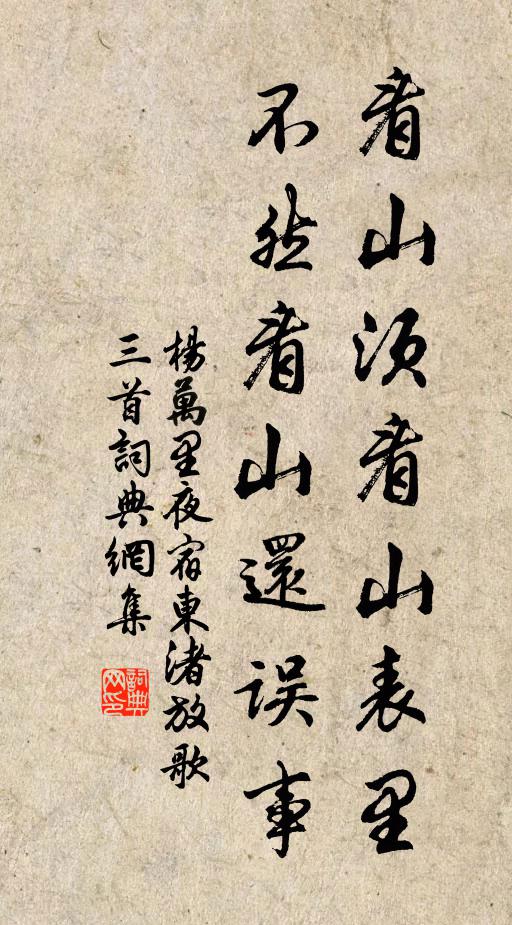 看山須看山表里
不然看山還误事
楊萬里夜宿東渚放歌
三首詞典網集
詞典网印